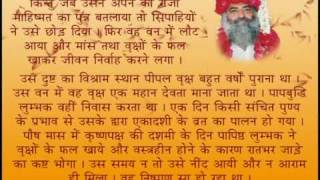 किन्तु जब उसने अपने को राजा
माहिष्मत का पुत्र बतलाया तो सिपाहियों
ने उसे छोड़ दिया । फिर वह वन में लौट
आया और मांस तथा वृक्षों के फल
खाकर जीवन निर्वाह करने लगा ।
उस दुष्ट का विश्राम स्थान पीपल वृक्ष बहुत वर्षों पुराना था ।
उस वन में वह वृक्ष एक महान देवता माना जाता था । पापबुद्धि
लुम्भक वहीं निवास करता था । एक दिन किसी संचित पुण्य
के प्रभाव से उसके द्वारा एकादशी के व्रत का पालन हो गया ।
पौष मास में कृष्णपक्ष की दशमी के दिन पापिष्ठ लुम्भक ने
वृक्षों के फल खाये और वस्त्रहीन होने के कारण रातभर जाड़े
का कष्ट भोगा । उस समय न तो उसे नींद आयी और न आराम
ही मिला । वह निष्प्राण सा हो रहा था ।